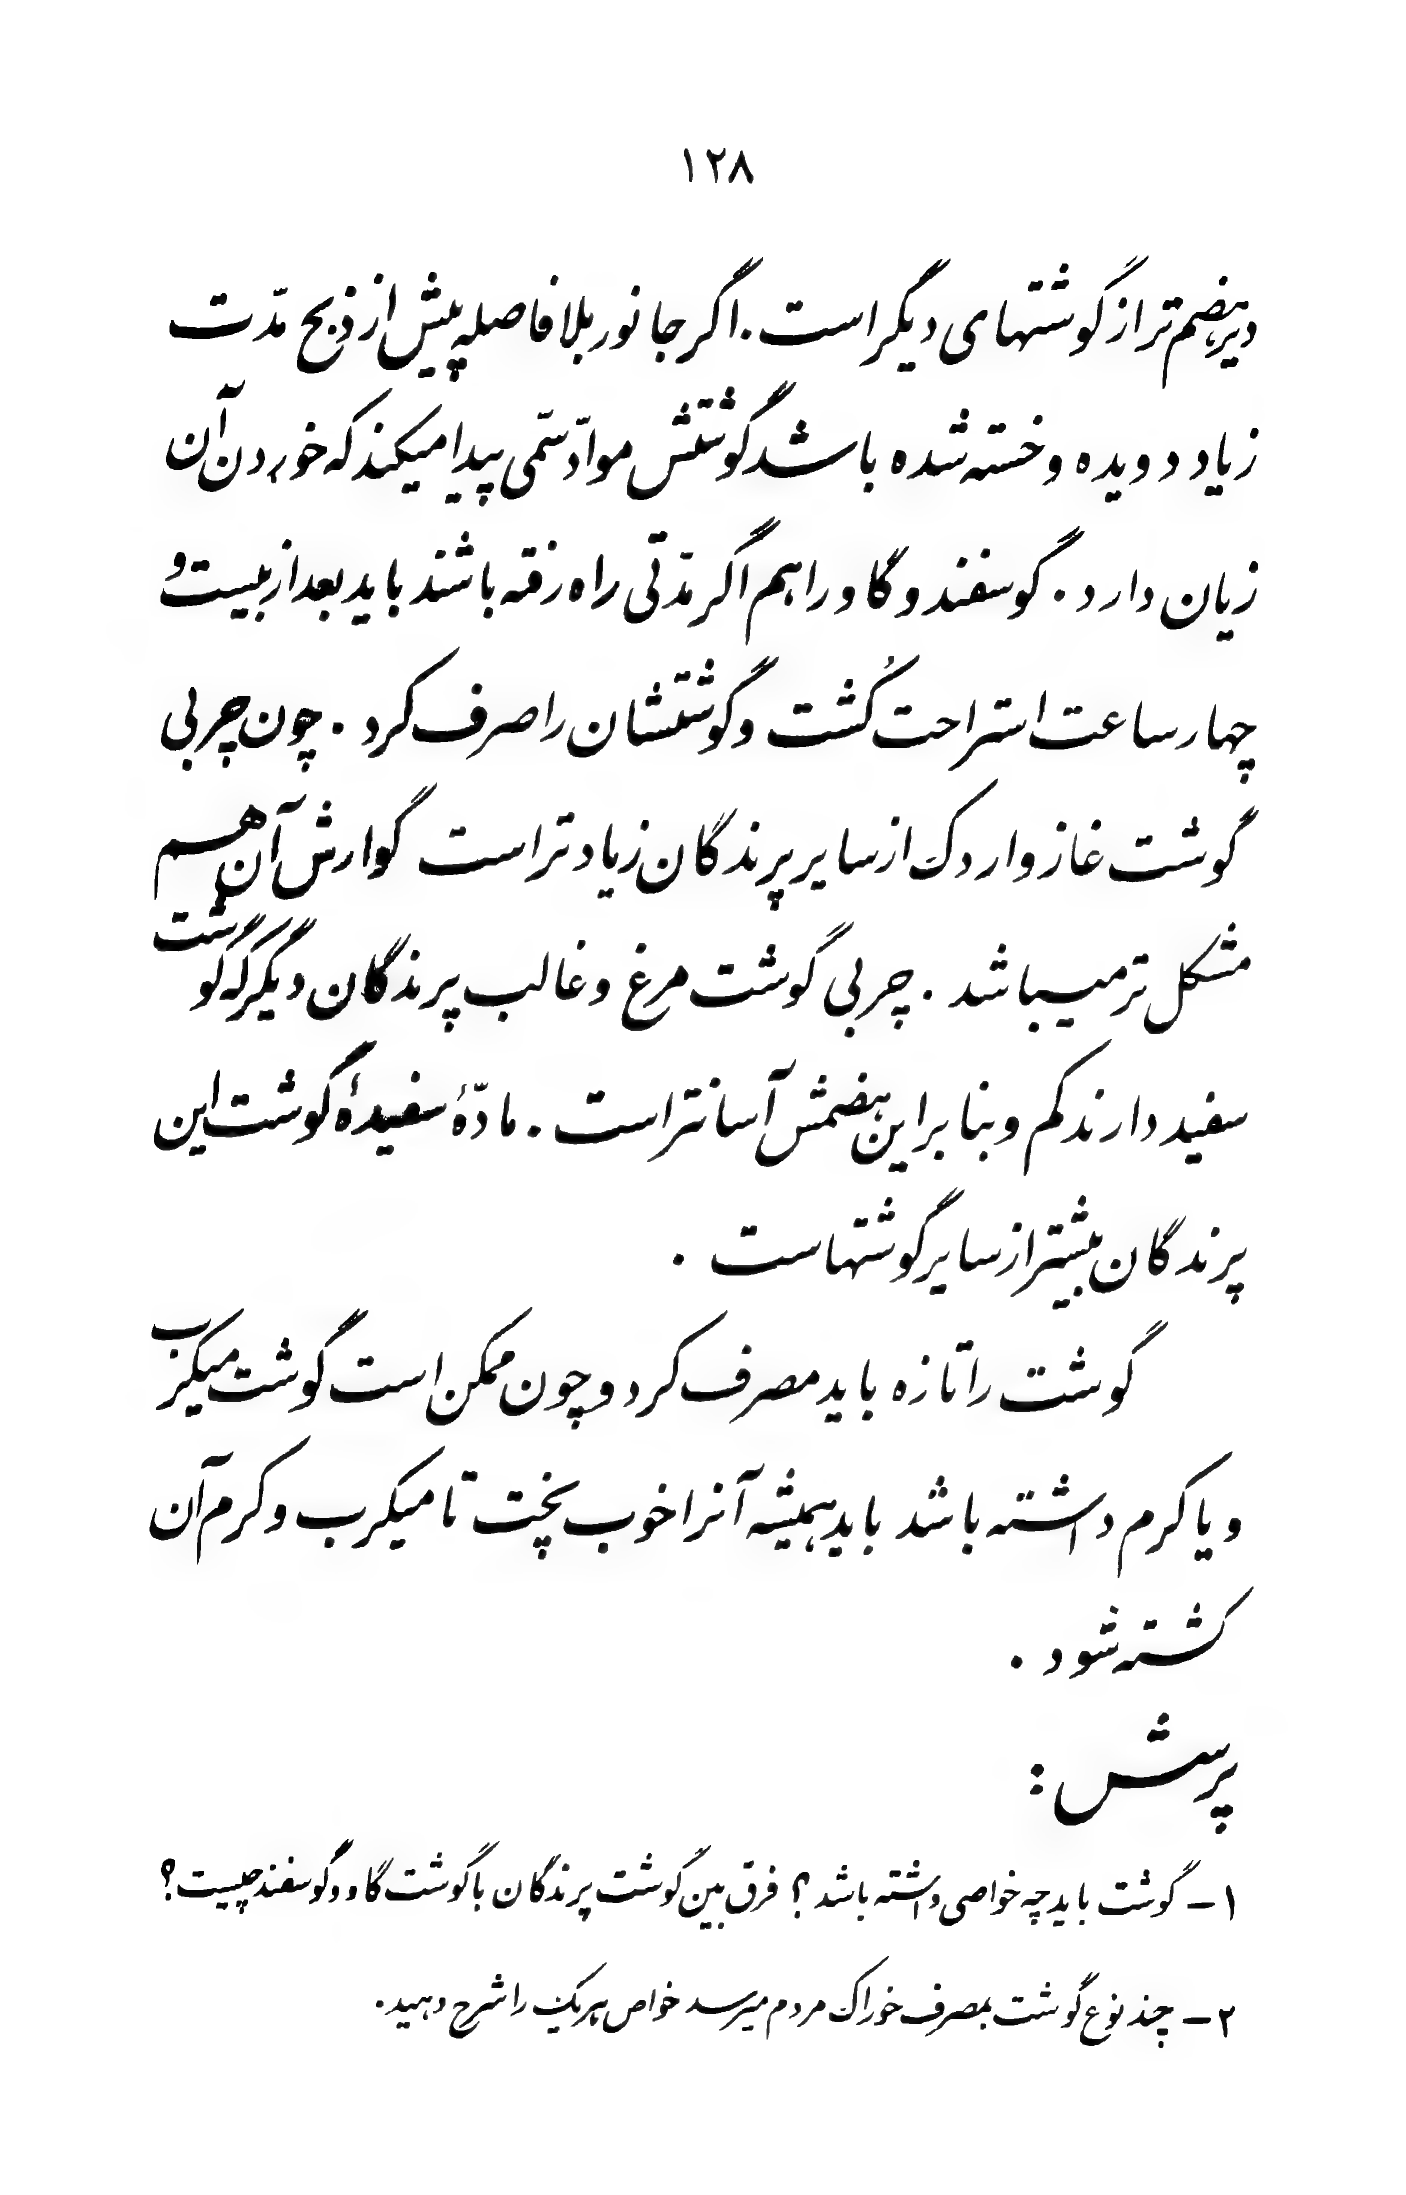 ۱۲۸
دیرهضم‌تر از گوشتهای دیگر است. اگر جانور بلافاصله پیش از ذبح مدّت
زیاد دویده و خسته شده باشد گوشتش موادّ سمّی پیدا میکند که خوردن آن
زیان دارد. گوسفند و گاو را هم اگر مدّتی راه رفته باشند باید بعد از بیست و
چهار ساعت استراحت کُشت و گوشتشان را صرف کرد. چون چربی
گوشت غاز و اردک از سایر پرندگان زیادتر است گوارش آن هم
مشکل تر میباشد. چربی گوشت مرغ و غالب پرندگان دیگر که گوشت
سفید دارند کم و بنابراین هضمش آسانتر است. مادّهٔ سفیدهٔ گوشت این
پرندگان بیشتر از سایر گوشتهاست.
گوشت را تازه باید مصرف کرد و چون ممکن است گوشت میکرب
و یا کرم داشته باشد باید همیشه آنرا خوب پخت تا میکرب و کرم آن
کشته شود.
پرسش:
۱- گوشت باید چه خواصی داشته باشد؟ فرق بین گوشت پرندگان با گوشت گاو و گوسفند چیست؟
۲- چند نوع گوشت بمصرف خوراک مردم میرسد خواص هریک را شرح دهید.